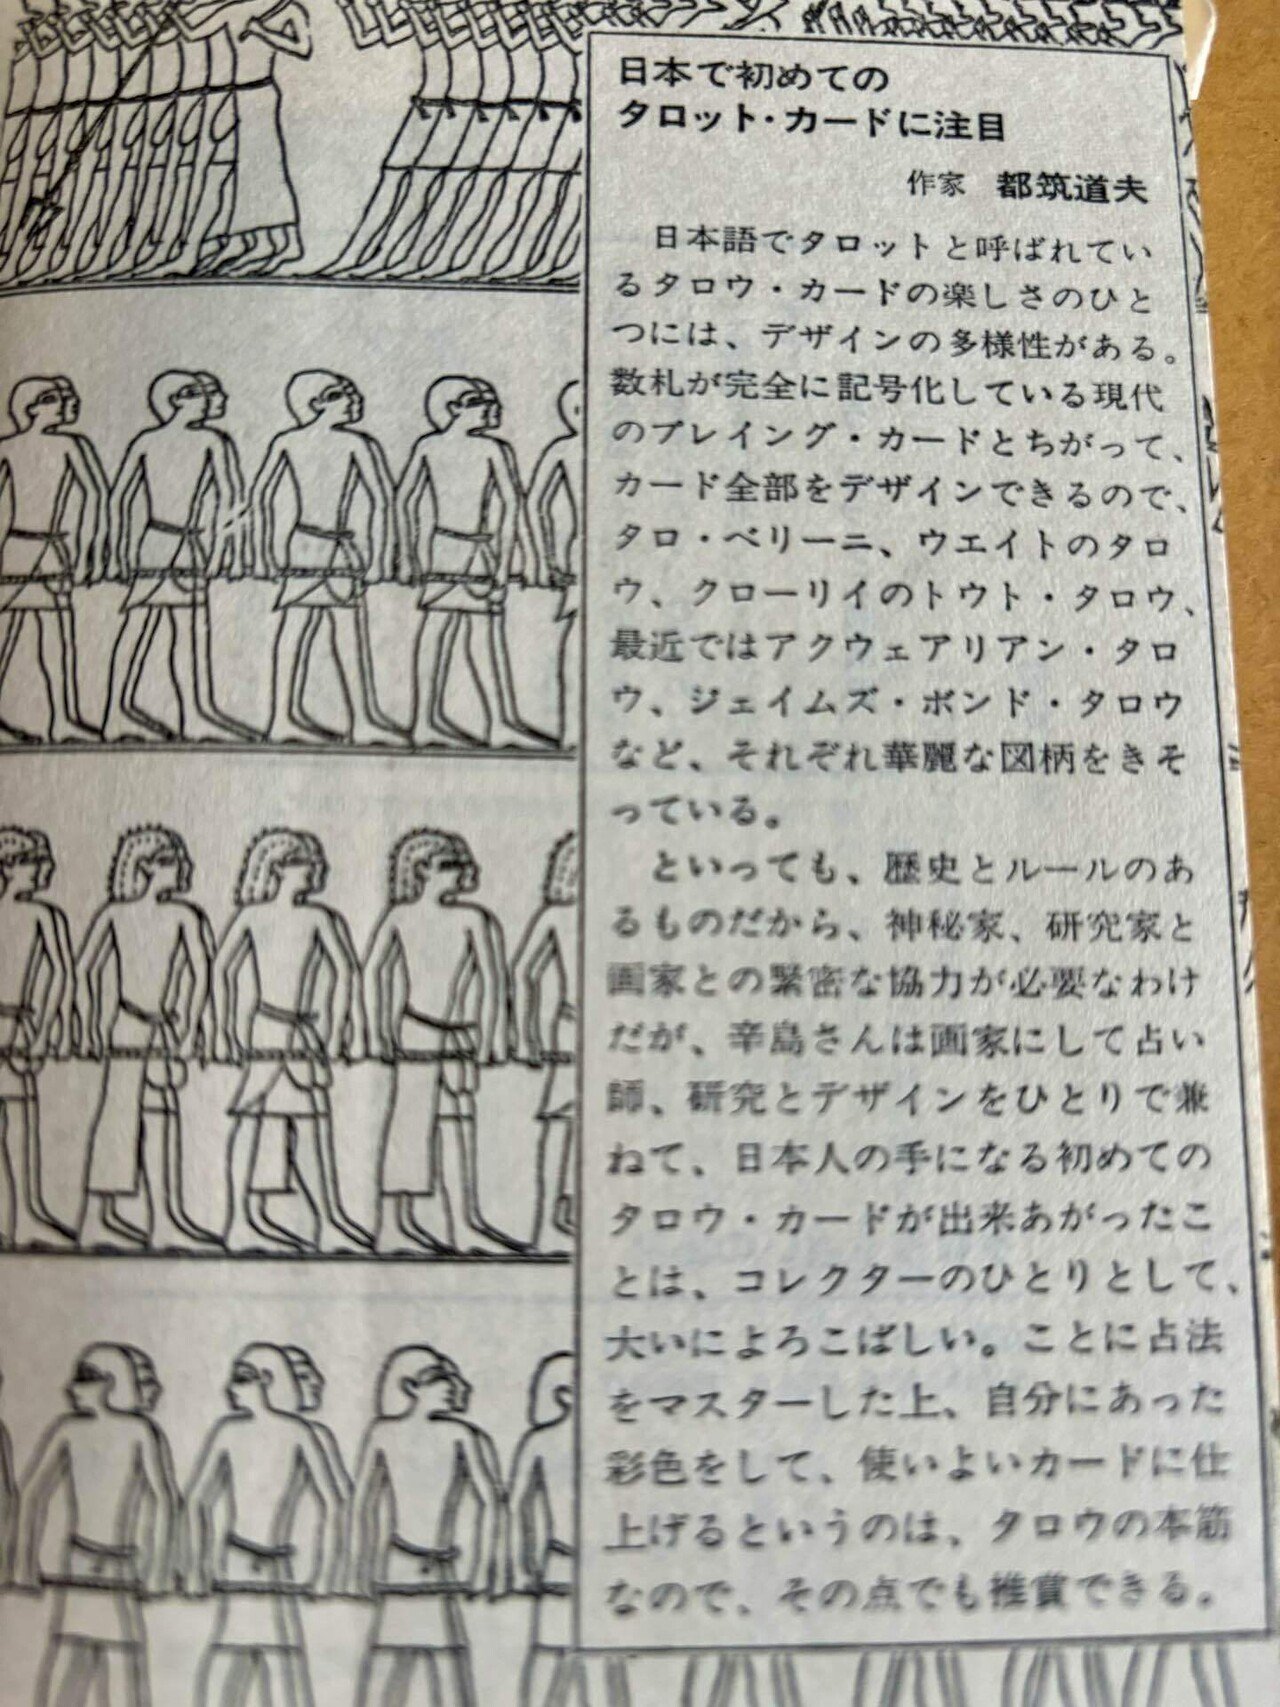 日本で初めての
タロット・カードに注目
作家 都筑道夫
日本語でタロットと呼ばれてい
るタロウ・カードの楽しさのひと
つには、デザインの多様性がある。
数札が完全に記号化している現代
のプレイング・カードとちがって、
カード全部をデザインできるので、
タロ・ベリーニ、ウエイトのタロ
ウ、クローリイのトウト・タロウ、
最近ではアクウェアリアン・タロ
ウ、ジェイムズ・ボンド・タロウ
など、それぞれ華麗な図柄をきそ
っている。
といっても、歴史とルールのあ
るものだから、神秘家、研究家と
画家との緊密な協力が必要なわけ
だが、辛島さんは画家にして占い
師、研究とデザインをひとりで兼
ねて、日本人の手になる初めての
タロウ・カードが出来あがったこ
とは、コレクターのひとりとして、
大いによろこばしい。ことに占法
をマスターした上、自分にあった
彩色をして、使いよいカードに仕
上げるというのは、タロウの本筋
なので、その点でも推賞できる。